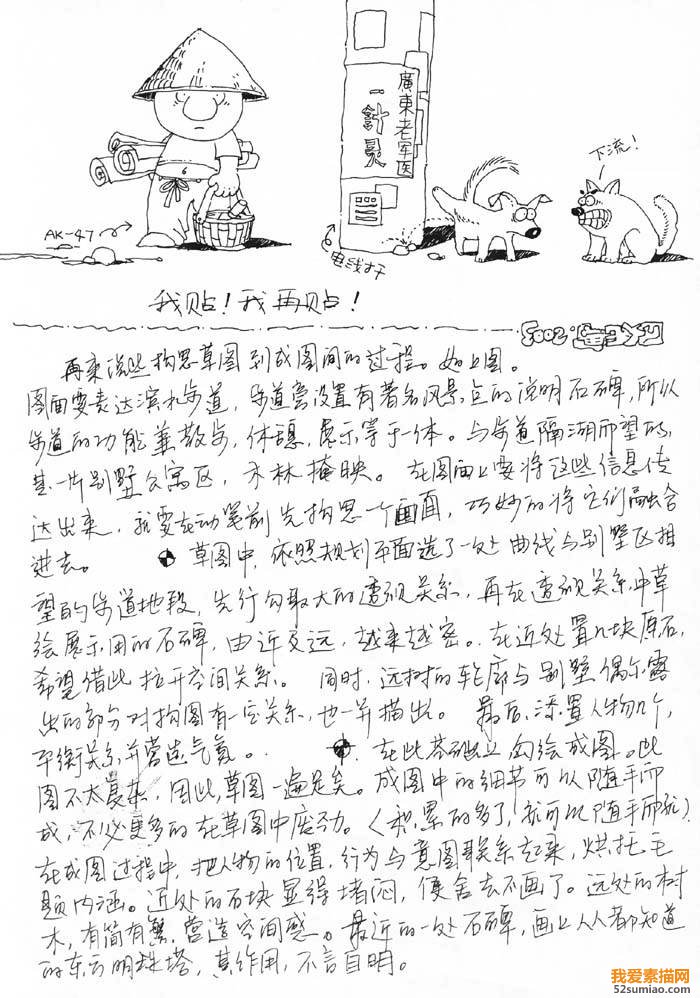 廣東老军医
一針灵
下流！
AK-47
电线杆
我贴！我再贴！
2005
再来说些构思草图到成图间的过程。如上图。
图面要表达滨水步道，步道旁设置有著名风景点的说明石碑，所以
步道的功能兼散步，休憩，展示等于一体。与步道隔湖而望的，
是一片别墅公寓区，木林掩映。在图面上要将这些信息传
达出来，就要在动笔前先构思一个画面，巧妙的将它们融合
进去。 草图中，依照规划平面选了一处曲线与别墅区相
望的步道地段，先行勾取大的透视关系，再在透视关系中草
绘展示用的石碑，由近及远，越来越密。在近处置几块原石，
希望借此拉开空间关系。 同时，远树的轮廓与别墅偶尔露
出的部分对构图有一定关系，也一并描出。 最后，添置人物几个，
平衡关系，并营造气氛。 在此基础上勾绘成图。此
图不太复杂，因此，草图一遍足矣。成图中的细节可以随手而
成，不必更多的在草图中废功。（积累的多了，就可以随手而就）
在成图过程中，把人物的位置，行为与意图联系起来，烘托主
题内涵。近处的石块显得堵闷，便舍去不画了。远处的树
木，有简有繁，营造空间感。最近的一处石碑，画上人人都知道
的东方明珠塔，其作用，不言自明。
我爱素描网
52sumiao.com